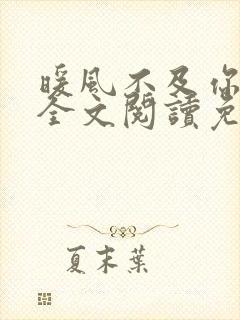 暖風不及你
全文閱讀免
夏末葉